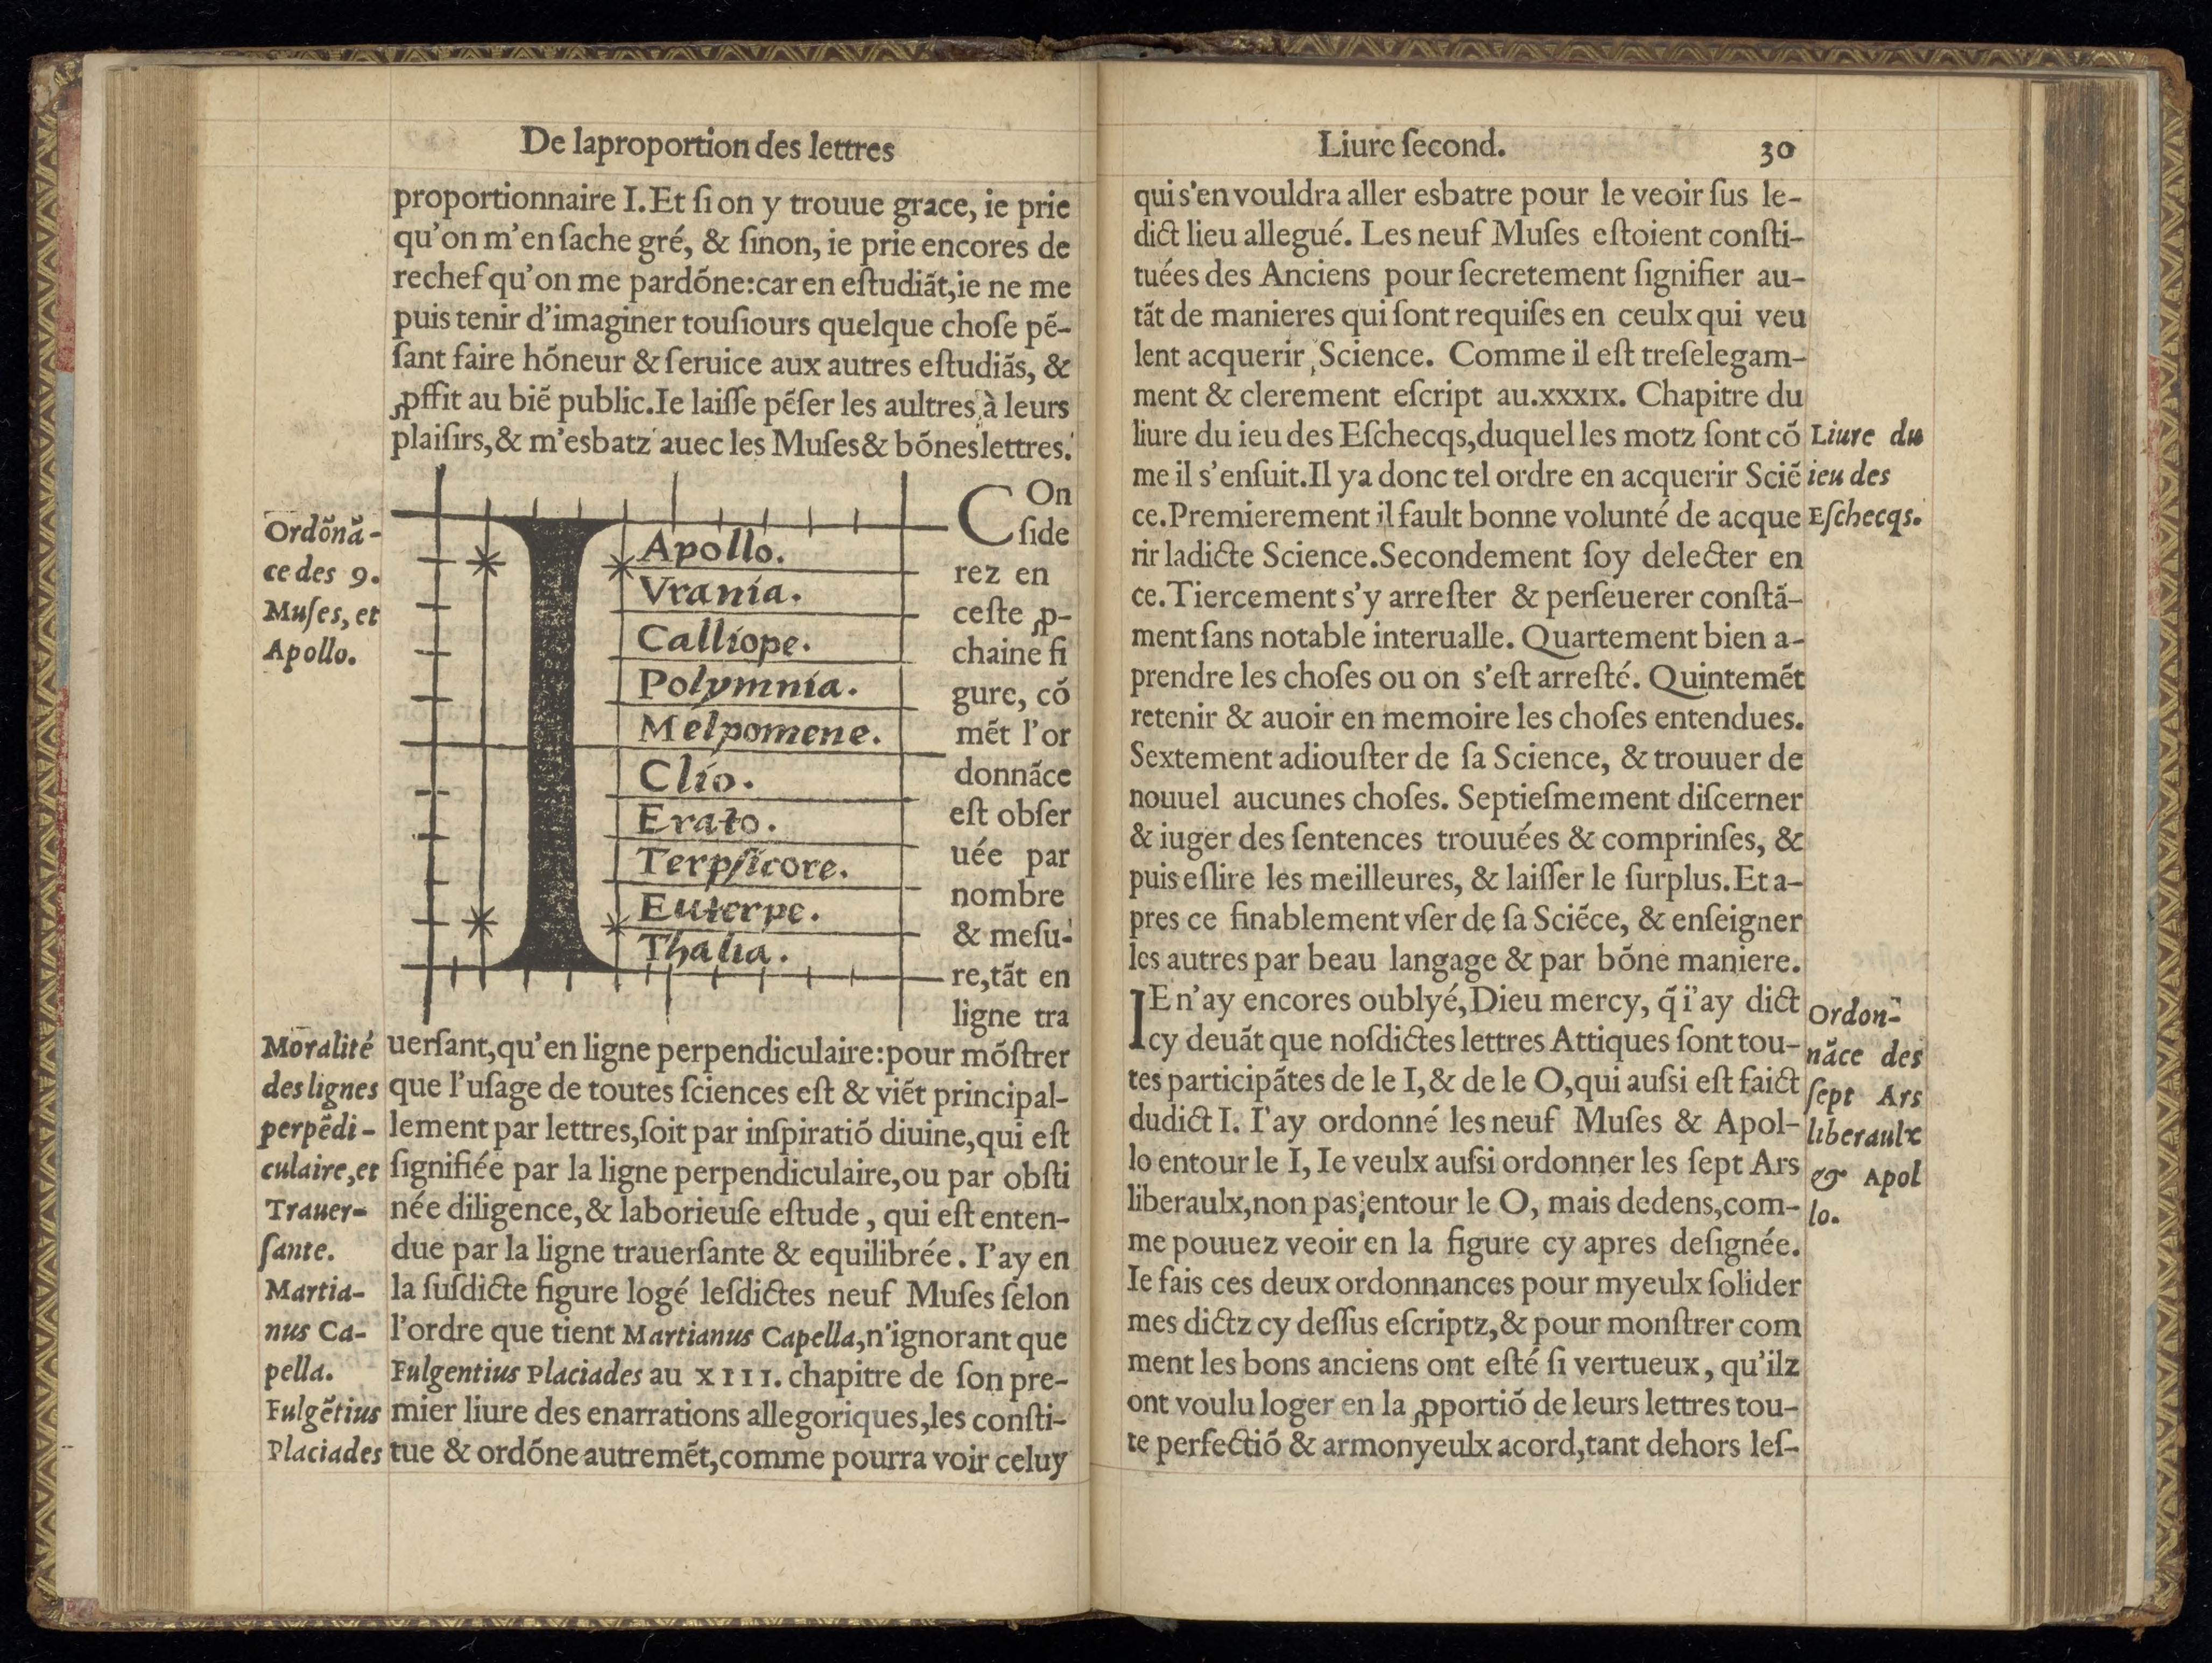 De laproportion des lettres
proportionnaire I. Et ſi on y trouue grace, ie prie
qu'on m'en ſache gré, & ſinon, ie prie encores de
rechef qu'on me pardõne: car en eſtudiãt, ie ne me
puis tenir d'imaginer touſiours quelque choſe pẽ-
ſant faire hõneur & ſeruice aux autres eſtudiãs, &
ꝓffit au biẽ public. Ie laiſſe pẽſer les aultres à leurs
plaiſirs, & m'esbatz auec les Muſes & bõnes lettres.
Ordõnã-
ce des 9.
Muſes, et
Apollo.
Apollo.
Vrania.
Calliope.
Polymnia.
Melpomene.
Clio.
Erato.
Terpſicore.
Euterpe.
Thalia.
COn
ſide
rez en
ceſte ꝓ-
chaine fi
gure, cõ
mẽt l'or
donnãce
eſt obſer
uée par
nombre
& meſu-
re, tãt en
ligne tra
uerſant, qu'en ligne perpendiculaire: pour mõſtrer
que l'uſage de toutes ſciences eſt & viẽt principal-
lement par lettres, ſoit par inſpiratiõ diuine, qui eſt
ſignifiée par la ligne perpendiculaire, ou par obſti
née diligence, & laborieuſe eſtude, qui eſt enten-
due par la ligne trauerſante & equilibrée. I'ay en
la ſuſdicte figure logé leſdictes neuf Muſes ſelon
l'ordre que tient Martianus Capella, n'ignorant que
Fulgentius Placiades au XIII. chapitre de ſon pre-
mier liure des enarrations allegoriques, les conſti-
tue & ordõne autremẽt, comme pourra voir celuy
Moralité
des lignes
perpẽdi-
culaire, et
Trauer-
ſante.
Martia-
nus Ca-
pella.
Fulgẽtius
Placiades
Liure ſecond. 30
qui s'en vouldra aller esbatre pour le veoir ſus le-
dict lieu allegué. Les neuf Muſes eſtoient conſti-
tuées des Anciens pour ſecretement ſignifier au-
tãt de manieres qui ſont requiſes en ceulx qui veu
lent acquerir Science. Comme il eſt treſelegam-
ment & clerement eſcript au .xxxIx. Chapitre du
liure du ieu des Eſchecqs, duquel les motz ſont cõ
me il s'enſuit. Il ya donc tel ordre en acquerir Sciẽ
ce. Premierement il fault bonne volunté de acque
rir ladicte Science. Secondement ſoy delecter en
ce. Tiercement s'y arreſter & perſeuerer conſtã-
ment ſans notable interualle. Quartement bien a-
prendre les choſes ou on s'eſt arreſté. Quintemẽt
retenir & auoir en memoire les choſes entendues.
Sextement adiouſter de ſa Science, & trouuer de
nouuel aucunes choſes. Septieſmement diſcerner
& iuger des ſentences trouuées & comprinſes, &
puis eſlire les meilleures, & laiſſer le ſurplus. Et a-
pres ce finablement vſer de ſa Sciẽce, & enſeigner
les autres par beau langage & par bõne maniere.
IE n'ay encores oublyé, Dieu mercy, q̃ i'ay dict
cy deuãt que noſdictes lettres Attiques ſont tou-
tes participãtes de le I, & de le O, qui auſsi eſt faict
dudict I. I'ay ordonné les neuf Muſes & Apol-
lo entour le I, Ie veulx auſsi ordonner les ſept Ars
liberaulx, non pas entour le O, mais dedens, com-
me pouuez veoir en la figure cy apres deſignée.
Ie fais ces deux ordonnances pour myeulx ſolider
mes dictz cy deſſus eſcriptz, & pour monſtrer com
ment les bons anciens ont eſté ſi vertueux, qu'ilz
ont voulu loger en la ꝓportiõ de leurs lettres tou-
te perfectiõ & armonyeulx acord, tant dehors leſ-
Liure du
ieu des
Eſchecqs.
Ordon-
nãce des
ſept Ars
liberaulx
& Apol
lo.